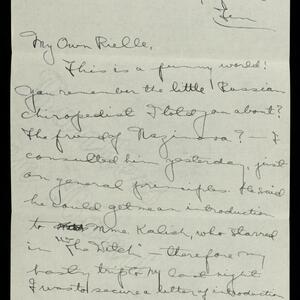 My Own Rielle,
This is a funny world!
You remember the little Russian
chiropodist I told you about?
The friend of Nazimova? — I
consulted him yesterday, just
on general principles. He said
he could get me an introduction
to Mme Kalich, who starred
in "The Witch" — therefore my
hasty trip to my last night
I was to secure a letter of introduction